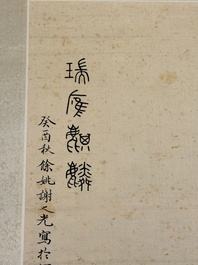 瑞應麒麟
癸酉秋餘姚謝之光寫於